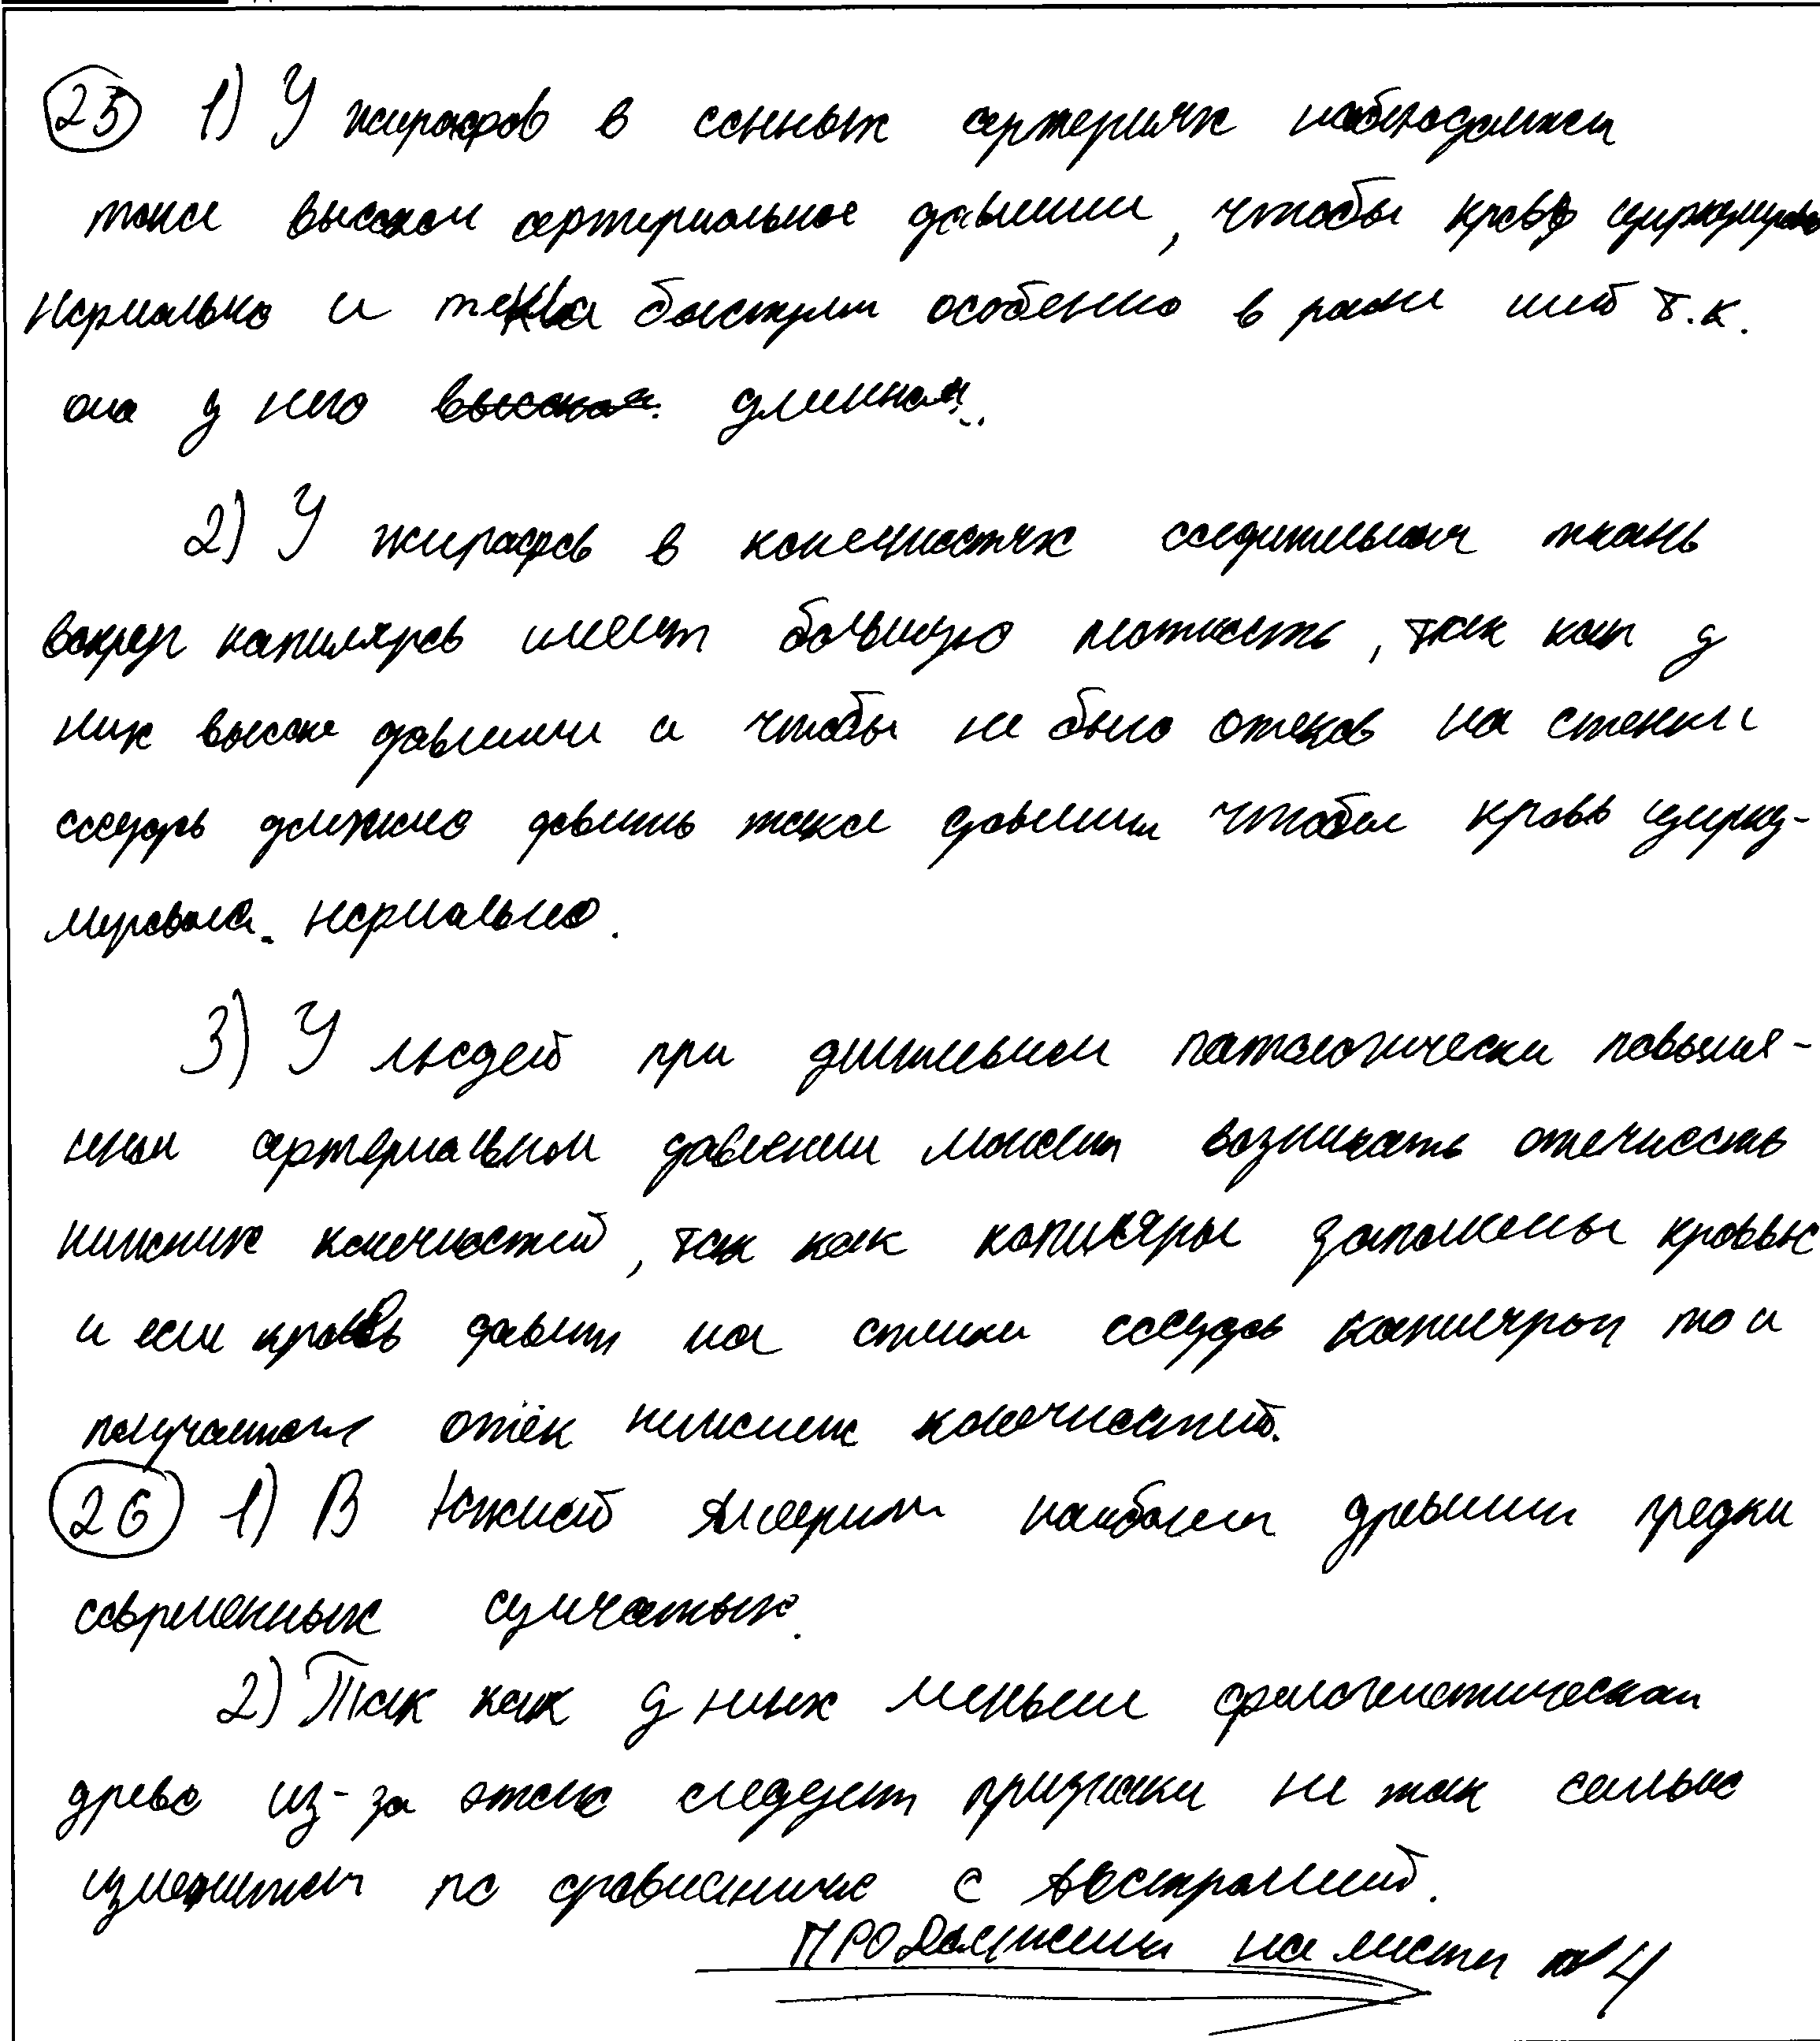 25 1) У жирафов в сонных артериях наблюдается
такое высокое артериальное давление, чтобы кровь циркулировала
нормально и текла быстрее особенно в районе шеи т.к.
она у него высокая длинная.
2) У жирафов в конечностях соединительная ткань
вокруг капиляров имеет большую плотность, так как у
них высокое давление и чтобы не было отеков на стенки
сосудов должно давить такое давление чтобы кровь цирку-
лировала нормально.
3) У людей при длительном патологически повыше-
нном артериальном давлении может возникать отечность
нижних конечностей, так как капиляры заполнены кровью
и если кровь давит на стенки сосудов капиляров то и
получается отёк нижних конечностей.
26 1) В Южной Америке наиболее древние предки
современных сумчатых.
2) Так как у них меньше филогенетическая
древо из-за этого следует признаки не так сильно
изменятся по сравнению с Австралией.
ПРОДолжение на листе №4